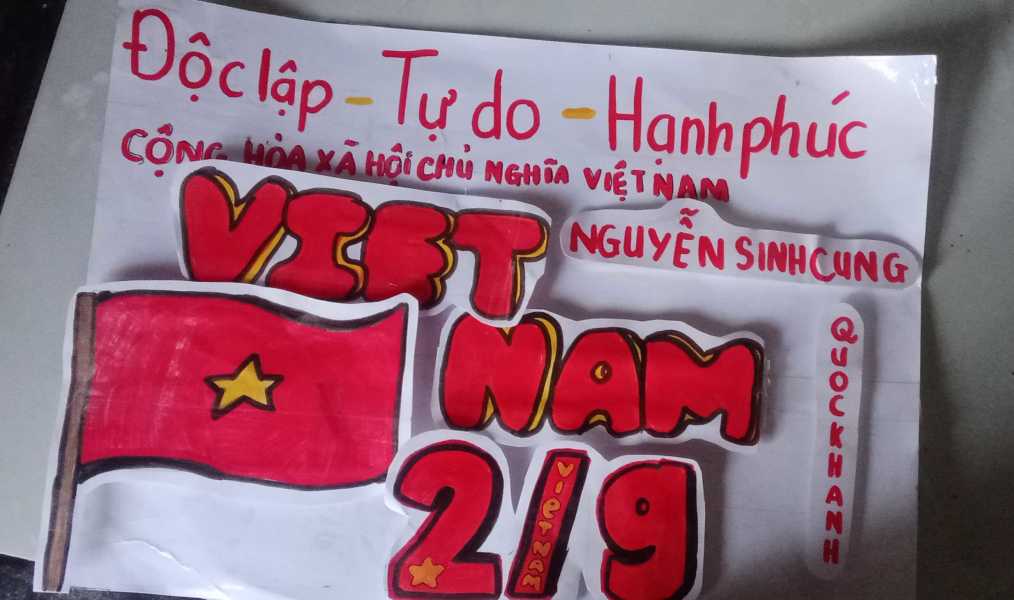 Độc lập - Tự do - Hạnh phúc
CỘNG HÒA XÃ HỘi CHỦ NGHĨA VIỆT NAM
VIET
NGUYỄN SINH CUNG
NAM
QUOCKHANH
2/9
VIETNAM